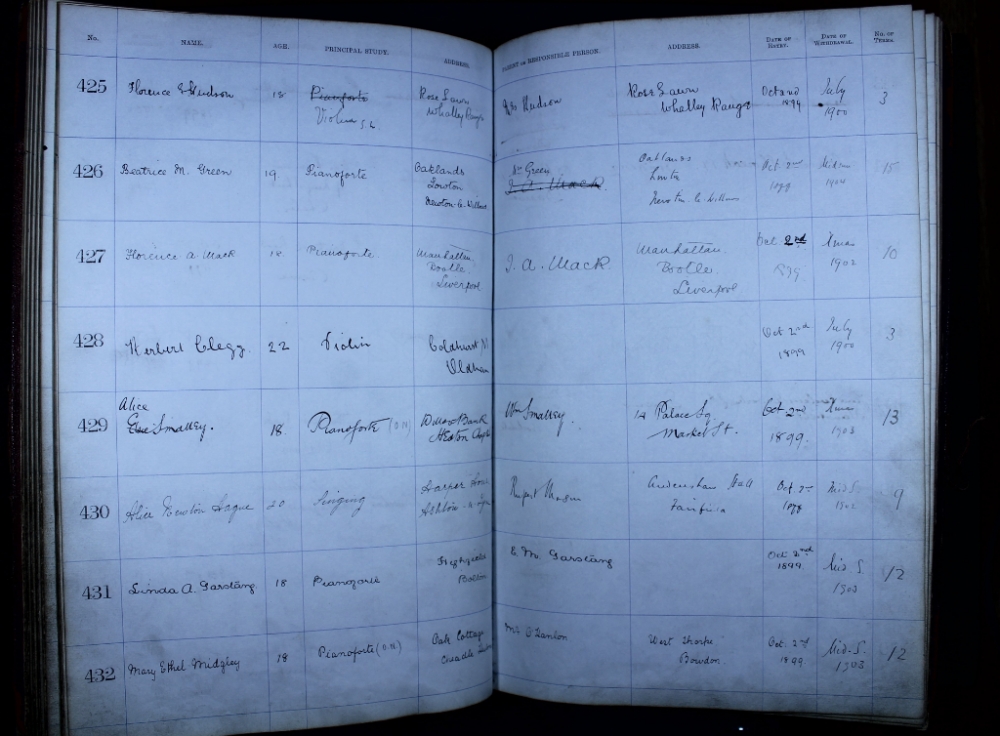 No. NAME. AGE. PRINCIPAL STUDY. ADDRESS. PARENT OR RESPONSIBLE PERSON. ADDRESS. DATE OF ENTRY. DATE OF WITHDRAWAL. No. OF TERMS.
425 Florence E Hudson 18 Pianoforte Rose Lawn Hudson Rose Lawn Oct 2nd July 3
Violin S.L. Whalley Range Whalley Range 1899 1900
426 Beatrice M. Green 19 Pianoforte Oaklands Mr Green Oaklands Oct. 2nd 15
Lowton J. A. Mack Lowton 1899 1904
Newton-le-Willows Newton-le-Willows
427 Florence A. Mack 18 Pianoforte Manhattan J. A. Mack Manhattan Oct. 2nd Xmas 10
Bootle Bootle 1899 1902
Liverpool Liverpool
428 Herbert Clegg 22 Violin Coldhurst Oct 2nd July 3
Oldham 1899 1900
429 Alice
Smalley. 18 Pianoforte Willow Bank Wm Smalley. 14 Palace Sq. Oct 2nd Xmas 13
Heaton Market St. 1899. 1903
430 Alice Newton Hague 20 Singing Audenshaw Hall Oct. 2nd Mid S. 9
Ashton Fairfield 1899
431 Linda A Garstang 18 Pianoforte Highfield E. M. Garstang Oct. 2nd Mid. S. 12
Bolton 1899. 1903
432 Mary Ethel Midgley 18 Pianoforte Oak Cottage West Thorpe Oct. 2nd Mid-S. 12
Cheadle Bowdon. 1899. 1903